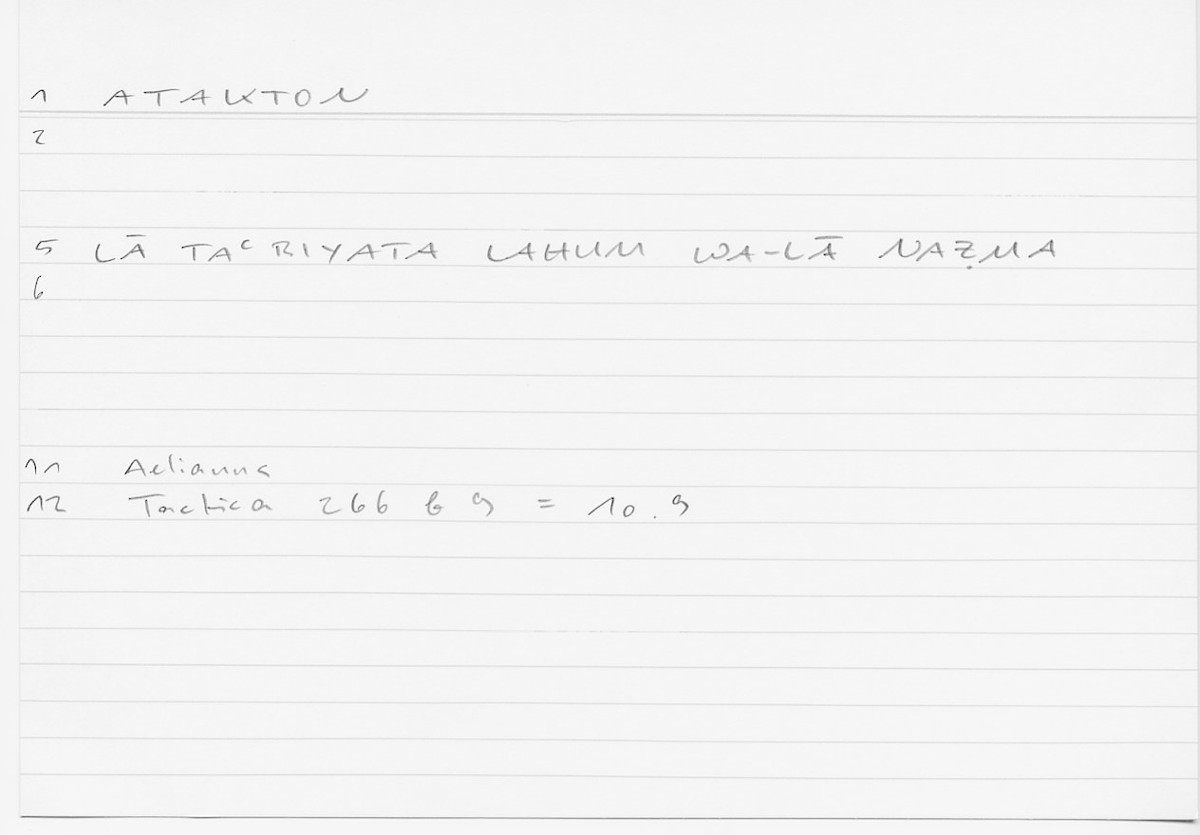 1 ATAKTON
2
5 LĀ TAᶜBIYATA LAHUM WA-LĀ NAẒMA
6
11 Aelianus
12 Tactica 266 b 9 = 10.9